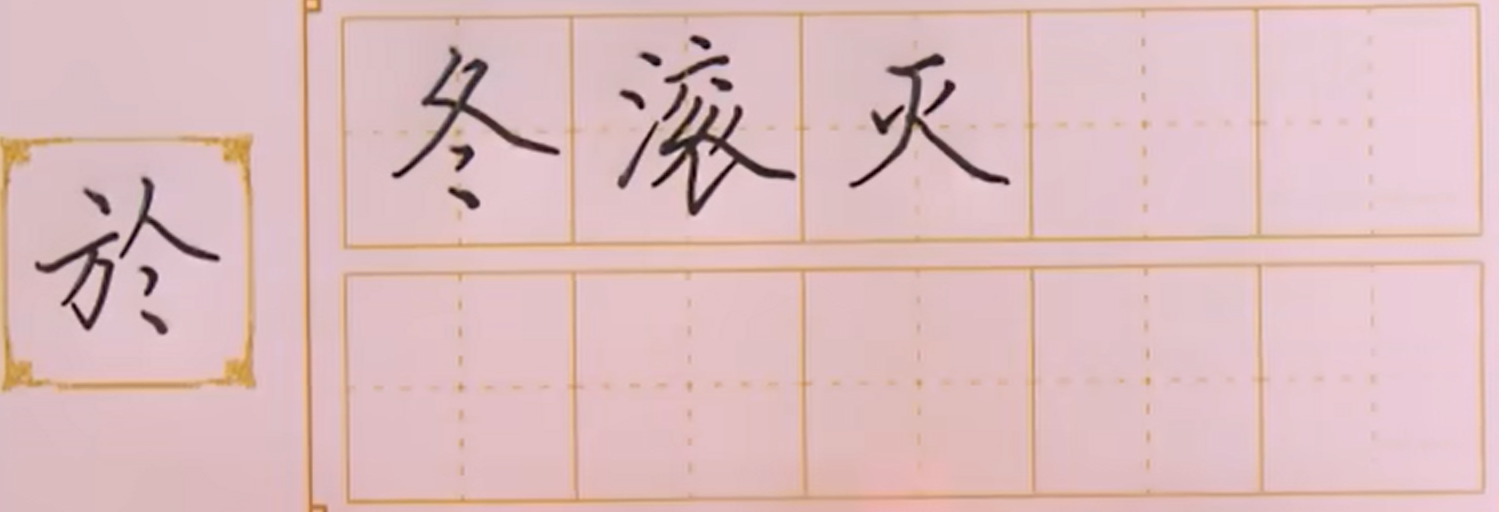 於
冬滚灭